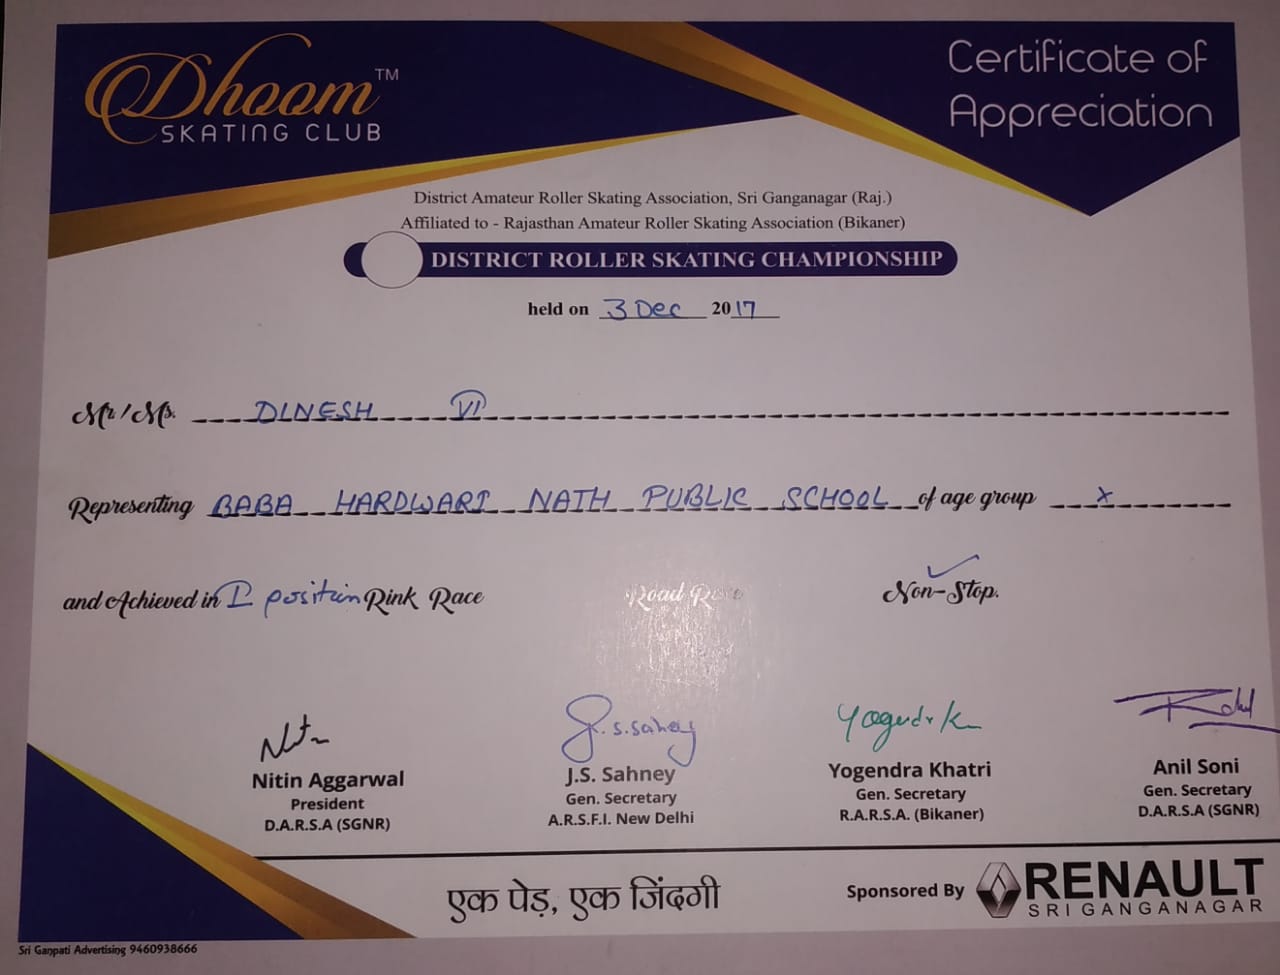 Dhoom™
SKATING CLUB
Certificate of
Appreciation
District Amateur Roller Skating Association, Sri Ganganagar (Raj.)
Affiliated to - Rajasthan Amateur Roller Skating Association (Bikaner)
DISTRICT ROLLER SKATING CHAMPIONSHIP
held on 3 Dec 2017
Mr/Ms. DINESH VI
Representing BABA HARDWARI NATH PUBLIC SCHOOL of age group X
and Achieved in I position Rink Race Road Race Non-Stop.
Nitin J.S. Sahney Yogendr K
Nitin Aggarwal J.S. Sahney Yogendra Khatri Anil Soni
President Gen. Secretary Gen. Secretary Gen. Secretary
D.A.R.S.A (SGNR) A.R.S.F.I. New Delhi R.A.R.S.A. (Bikaner) D.A.R.S.A (SGNR)
एक पेड़, एक जिंदगी
Sponsored By RENAULT
SRI GANGANAGAR
Sri Ganpati Advertising 9460938666